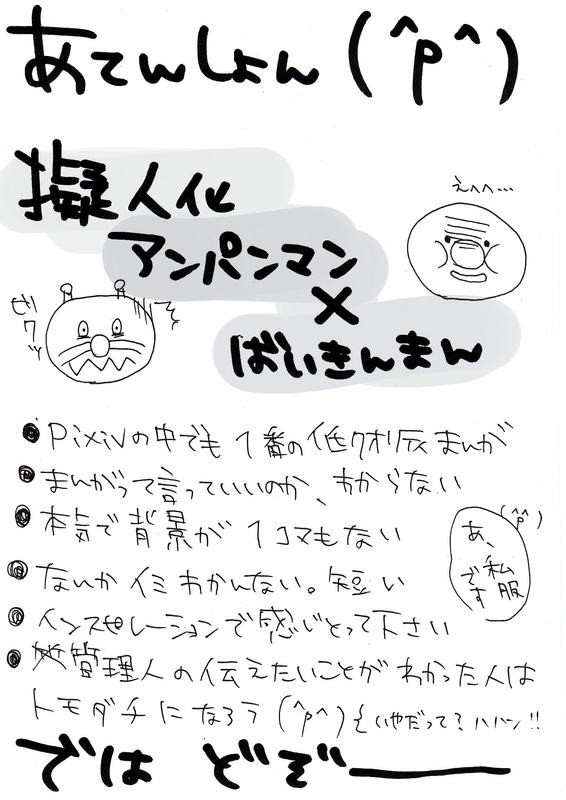 あてんしょん(^p^)
擬人化
えへへ…
アンパンマン
×
ばいきんまん
ビクッ
Pixivの中でも1番の低クオリティまんが
まんがって言っていいのか、わからない
本気で背景が1コマもない
(^p^)
あ、私服です
なんかイミわかんない。短い
インスピレーションで感じとって下さい
管理人の伝えたいことがわかった人は
トモダチになろう(^p^){いやだって?ハハーン!!
では どぞー